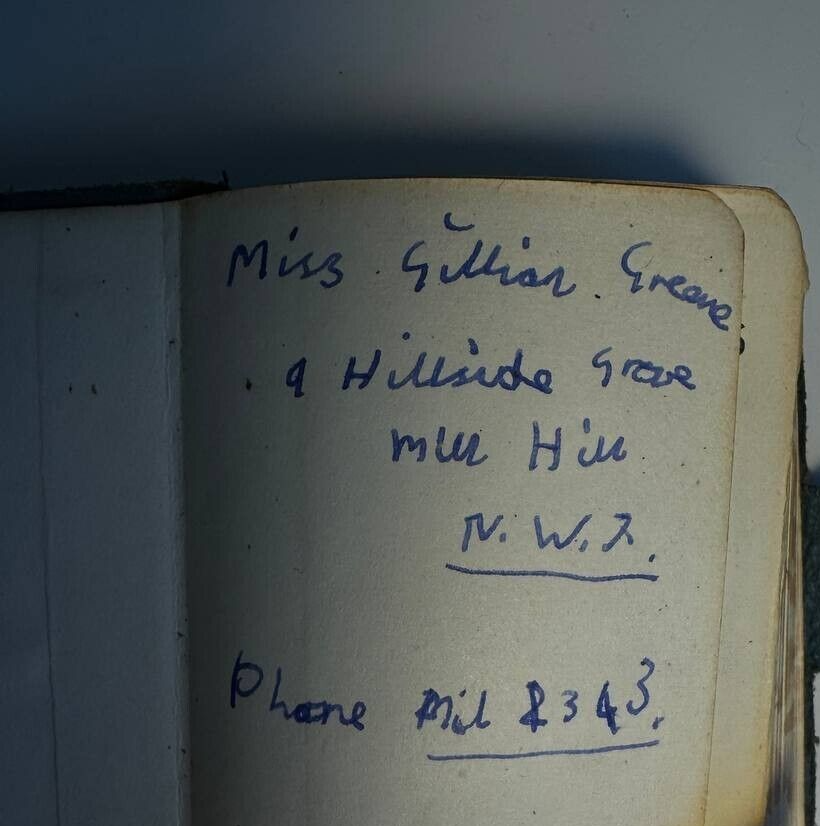 Miss Gillian Greene
9 Hillside Grove
Mill Hill
N. W. 7.
Phone Mil 2343.